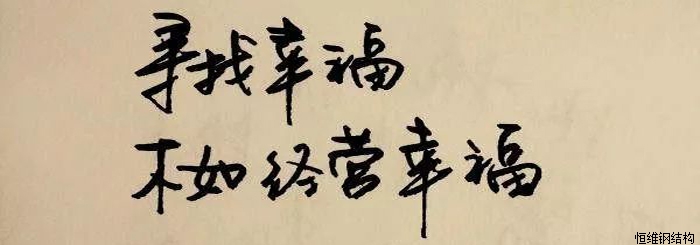 寻找幸福
不如经营幸福
恒维钢结构